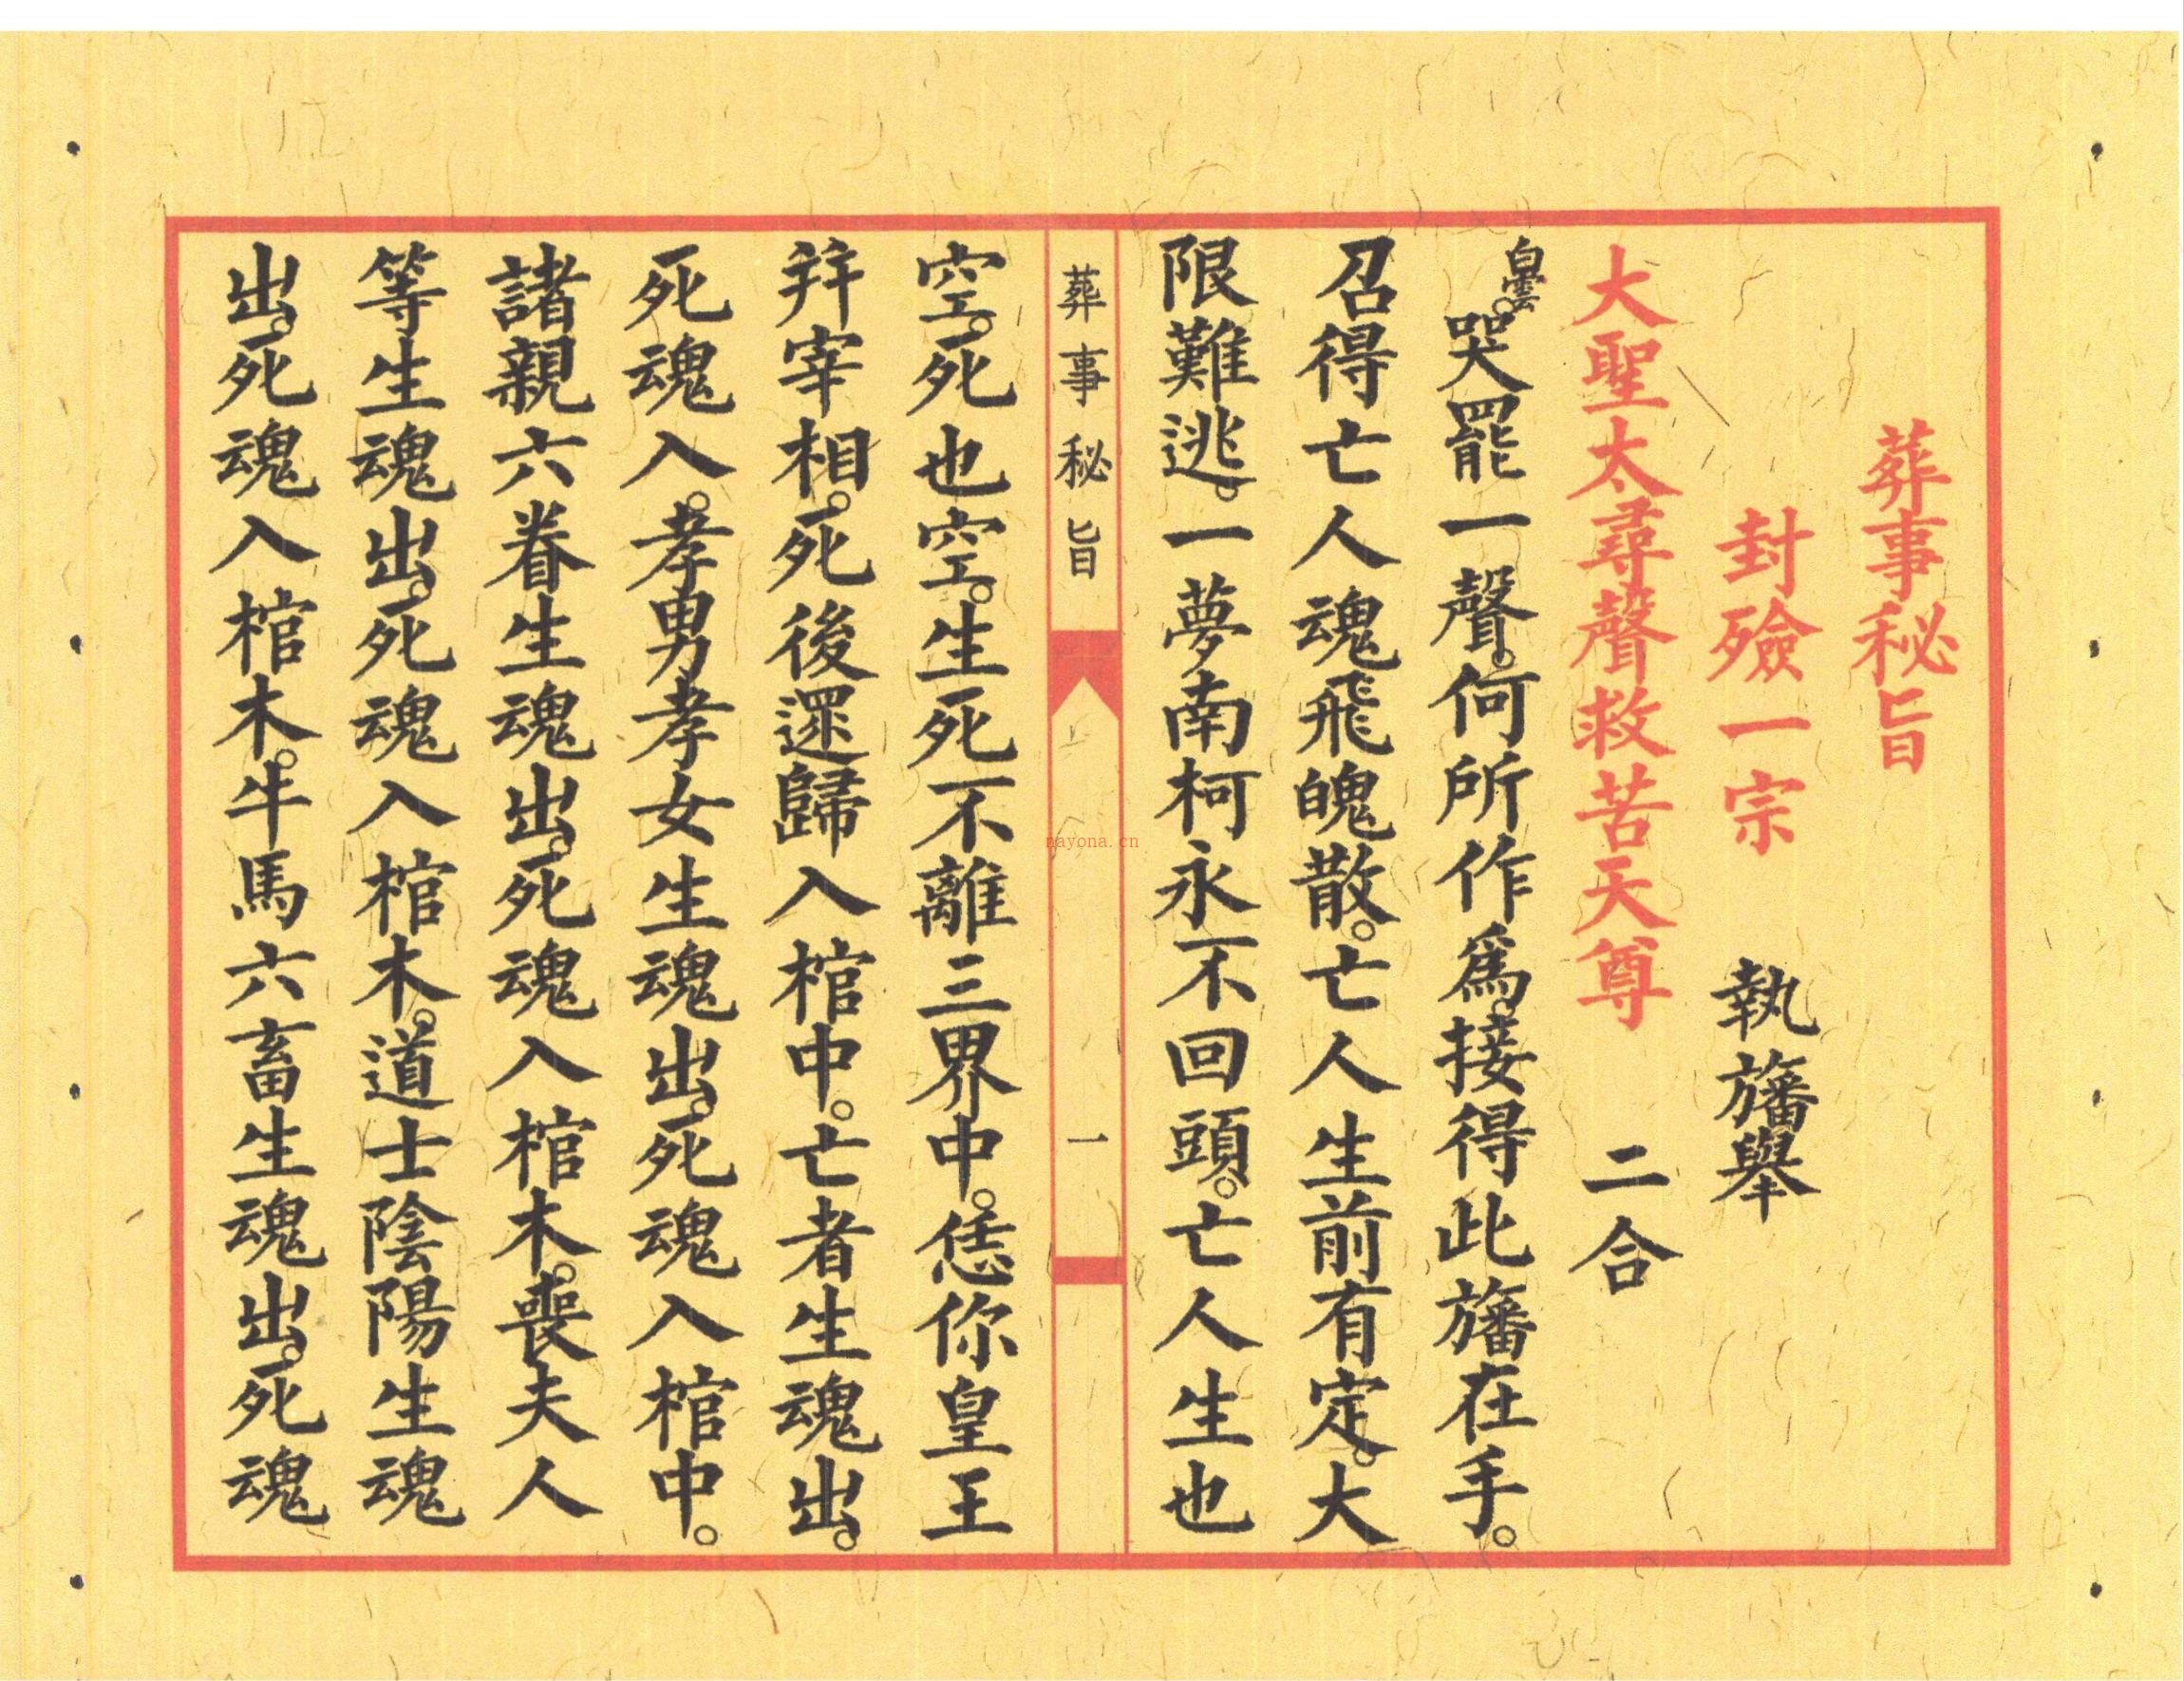 葬事秘旨
封殮一宗 執旛舉
大聖太尋聲救苦天尊 二合
白雲。哭罷一聲。何所作爲。接得此旛在手。
召得亡人魂飛魄散。亡人生前有定。大
限難逃。一夢南柯永不回頭。亡人生也
葬事秘旨 一
空。死也空。生死不離三界中。恁你皇王
并宰相。死後還歸入棺中。亡者生魂出。
死魂入。孝男孝女生魂出。死魂入棺中。
諸親六眷生魂出。死魂入棺木。喪夫人
等生魂出。死魂入棺木。道士陰陽生魂
出。死魂入棺木。牛馬六畜生魂出。死魂
nayona.cn